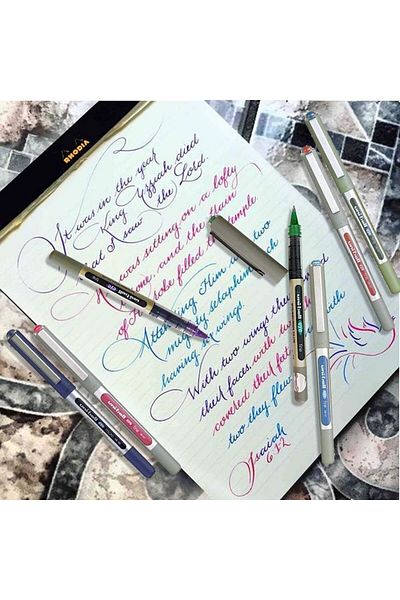 RHODIA
It was in the year
King Uzziah died
that I saw the Lord.
He was sitting on a lofty
throne, and the train
of His robe filled the temple
Attending Him were two
mighty seraphim, each
having six wings.
With two wings they
their faces, with two
covered their feet, with
two they flew
Isaiah
6:1,2
uni-ball eye
uni-ball eye
uni-ball eye
uni-ball eye
uni-ball
uni-ball
uni-ball eye